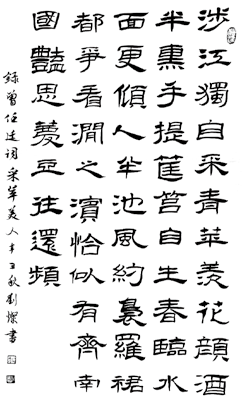 涉江獨自采青苹羨花顏酒
半熏手提筐筥自生春臨水
面更傾人半池風約裊羅裙
都爭看澗之濱恰似有齊南
國豔思羨並往還頻
錄曾任廷词采苹美人辛丑秋劉燦書